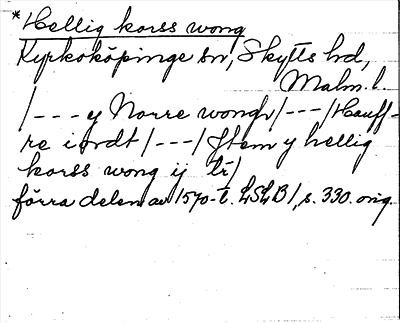 *Hellig korss wong
Kyrkoköpinge sn, Skytts hd,
Malm. l.
/--- y Norre wongh /---/ Hauff-
re iordt /---/ Jtem y hellig
korss wong ij
förra delen av 1570-t. LSLB 1, s. 330. orig.